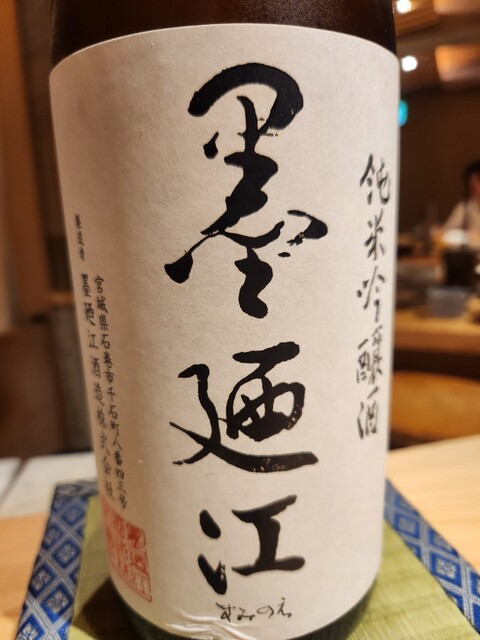 純米吟醸酒
墨廼江
すみのえ
製造者
宮城県石巻市千石町八番四三号
墨廼江酒造株式会社